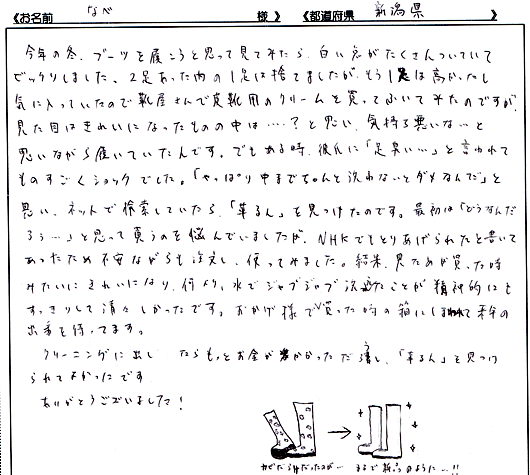 《お名前 なべ 様》《都道府県 新潟県 》
今年の冬、ブーツを履こうと思って見てみたら、白いカビがたくさんついていて
ビックリしました。2足あった内の1足は捨てましたが、もう1足は高かったし
気に入っていたので靴屋さんで皮靴用のクリームを買ってふいてみたのですが、
見た目はきれいになったものの中は…？と思い、気持ち悪いな…と
思いながら履いていたんです。でもある時、彼氏に「足臭い…」と言われて
ものすごくショックでした。「やっぱり中までちゃんと洗わないとダメなんだ」と
思い、ネットで検索していたら、「革るん」を見つけたのです。最初は「どうなんだ
ろう…」と思って買うのを悩んでいましたが、NHKでもとりあげられたと書いて
あったため不安ながらも注文し、使ってみました。結果、見ためが買った時
みたいにきれいになり、何より、水でジャブジャブ洗えたことが精神的にも
すっきりして清々しかったです。おかげ様で買った時の箱にしまわれて来年の
出番を待ってます。
クリーニングに出したらもっとお金がかかっただろうし、「革るん」を見つけ
られてよかったです
ありがとうございました！
カビだらけだったのが… まるで新品のように…!!